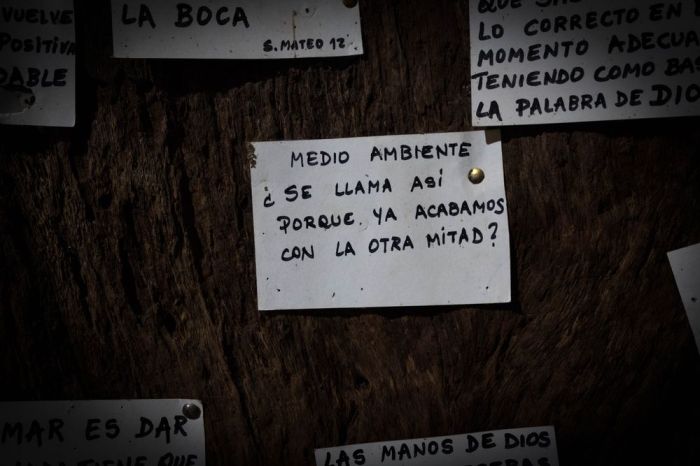 VUELVE
POSITIVA
DABLE
LA BOCA
S. MATEO 12
LO CORRECTO EN
MOMENTO ADECUA
TENIENDO COMO BAS
LA PALABRA DE DIO
MEDIO AMBIENTE
¿SE LLAMA ASÍ
PORQUE YA ACABAMOS
CON LA OTRA MITAD?
MAR ES DAR
TIENE QUE
LAS MANOS DE DIOS